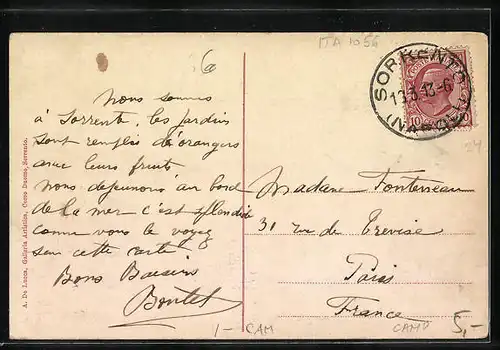 ITA 1056
6a
Nous sommes
à Sorrente, les jardins
sont remplis d'orangers
avec leurs fruits
nous déjeunons au bord
de la mer c'est splendide
comme vous le voyez
sur cette carte
Bons Baisers
Boutet
Madame Fontereau
31 rue de Trevise
Paris
France
SORRENTO (NAPOLI)
13-6
10
24
A. De Luca, Galleria Artistica, Corso Duomo, Sorrento.
1- CAM
CAMP
5,-